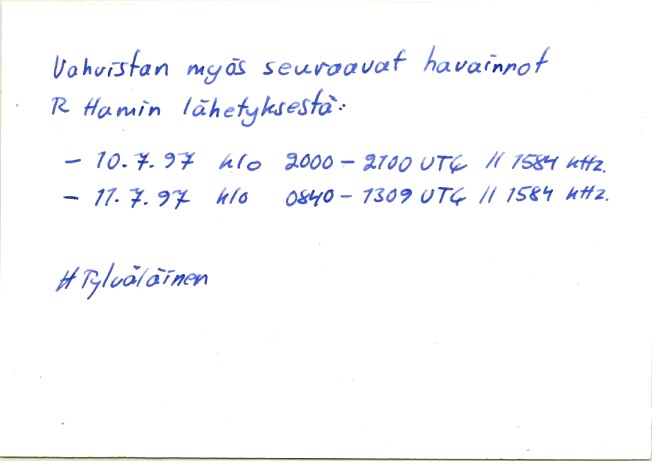 Vahvistan myös seuraavat havainnot
R Hamin lähetyksestä:
- 10.7.97 klo 2000-2100 UTC // 1584 kHz.
- 11.7.97 klo 0840-1309 UTC // 1584 kHz.
H Tylväläinen